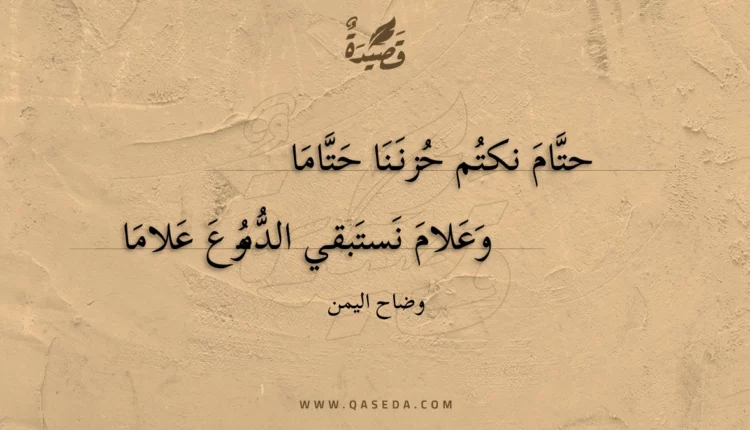 قَصِيدَةٌ
حتَّامَ نكتُم حُزنَنَا حَتَّامَا
وَعَلامَ نَستَبقي الدُّمُوعَ عَلامَا
وضاح اليمن
WWW.QASEDA.COM